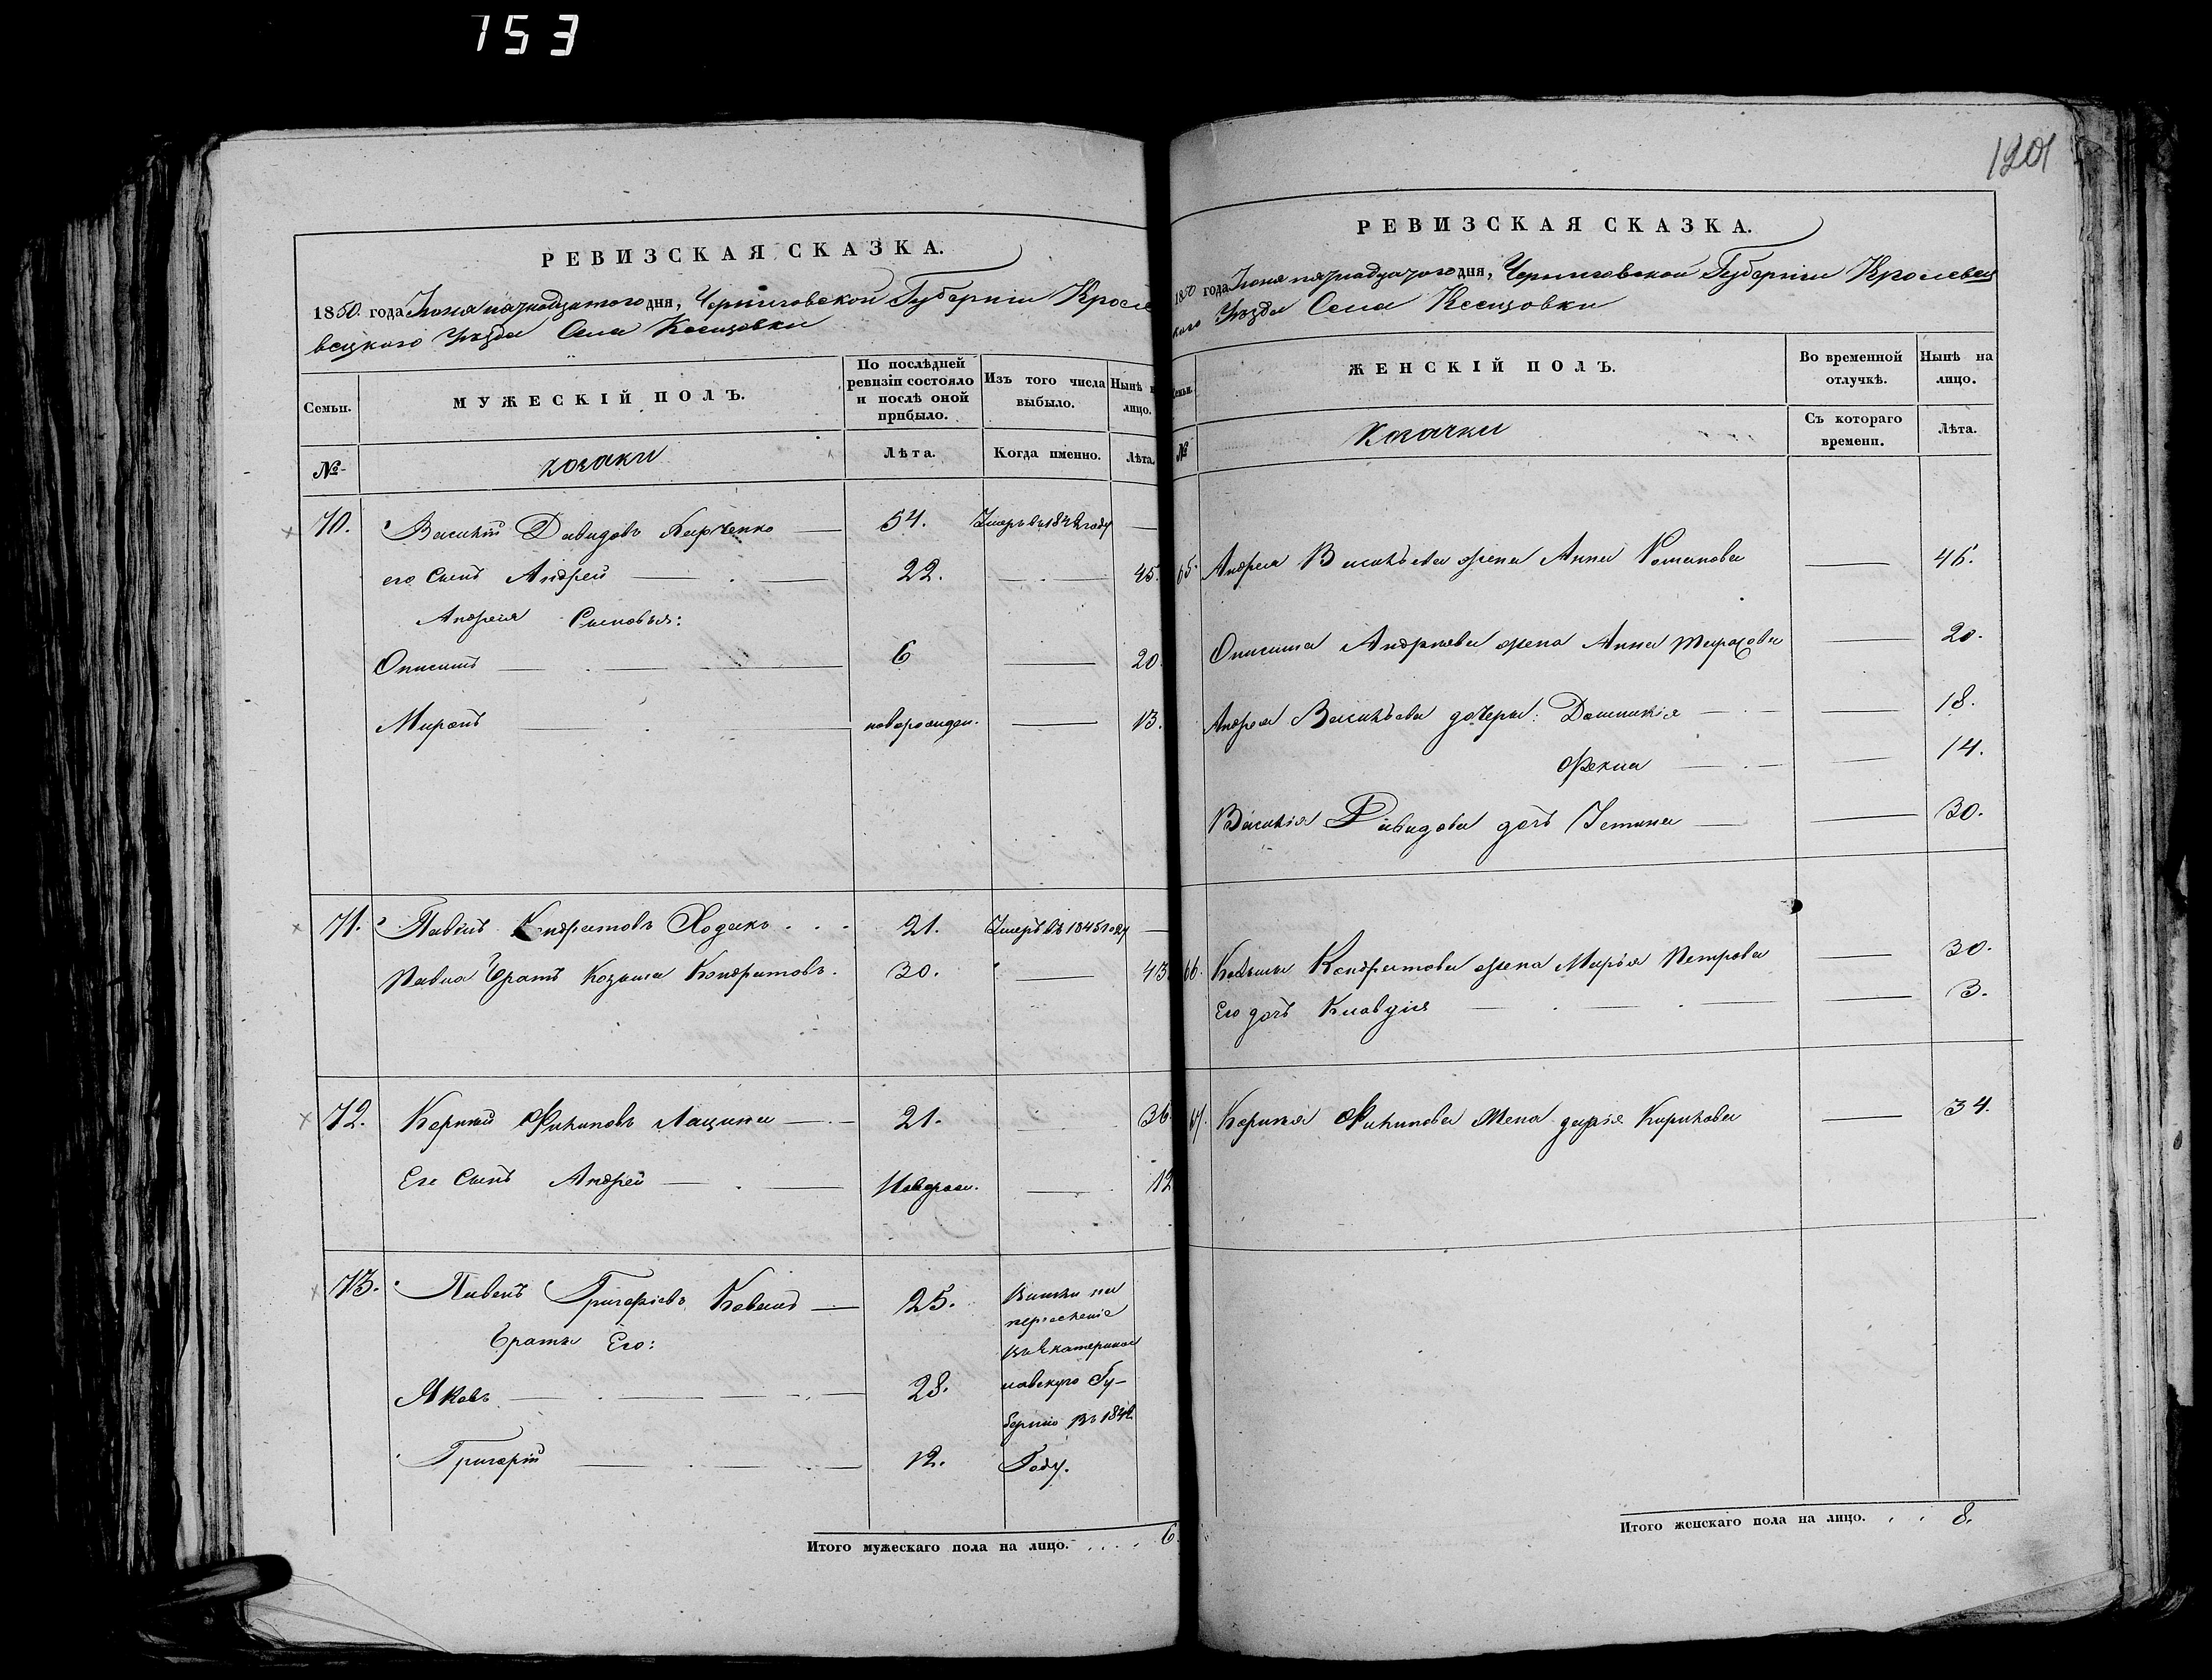 753
1201
РЕВИЗСКАЯ СКАЗКА.
1850. года Іюня пятнадцатого дня, Черниговской Губерніи Кроле
вецкого Уезда Села
Семьи.
МУЖЕСКІЙ ПОЛЪ.
По послѣдней ревизіи состояло и послѣ оной прибыло.
Изъ того числа выбыло.
Нынѣ на лицо.
№
козаки
Лѣта.
Когда именно.
Лѣта.
70. Василій Давидовъ Харченко 54. Умеръ въ 1842 году
его Сынъ Андрей 22. 45.
Андрея Сыновья:
Онисимъ 6 20
Миронъ новорожден. 13.
71. Павелъ Кондратовъ Ходакъ 21. Умеръ въ 1845 году
Павла братъ Козьма Кондратовъ. 30. 43
72. Корній Филиповъ Лацина 21. 36
Его Сынъ Андрей Новорож. 12
73. Павелъ Григоріевъ 25. Вышли на
переселеніе
Братья Его: въ Екатерино
Яковъ 28. славскую Гу-
берню Въ 1842
Григорій 12. Году.
Итого мужескаго пола на лицо. 6.
РЕВИЗСКАЯ СКАЗКА.
1850 года Іюня пятнадцатого дня, Черниговской Губерніи Кролевец
кого Уезда Села
Семьи.
ЖЕНСКІЙ ПОЛЪ.
Во временной отлучкѣ.
Нынѣ на лицо.
№
Козачки
Съ котораго времени.
Лѣта.
65. Андрея Васильева жена Анна Романова 46.
Онисима Андреева жена Анна 20.
Андрея Васильева дочери: Домникія 18.
Фекла 14.
Василія Давидова дочь Устина 30.
66. Козьмы Кондратова жена Марья Петрова 30.
Его дочь Клавдія 3.
67. Корнія Филипова Жена дарія Кирилова 34.
Итого женскаго пола на лицо. 8.